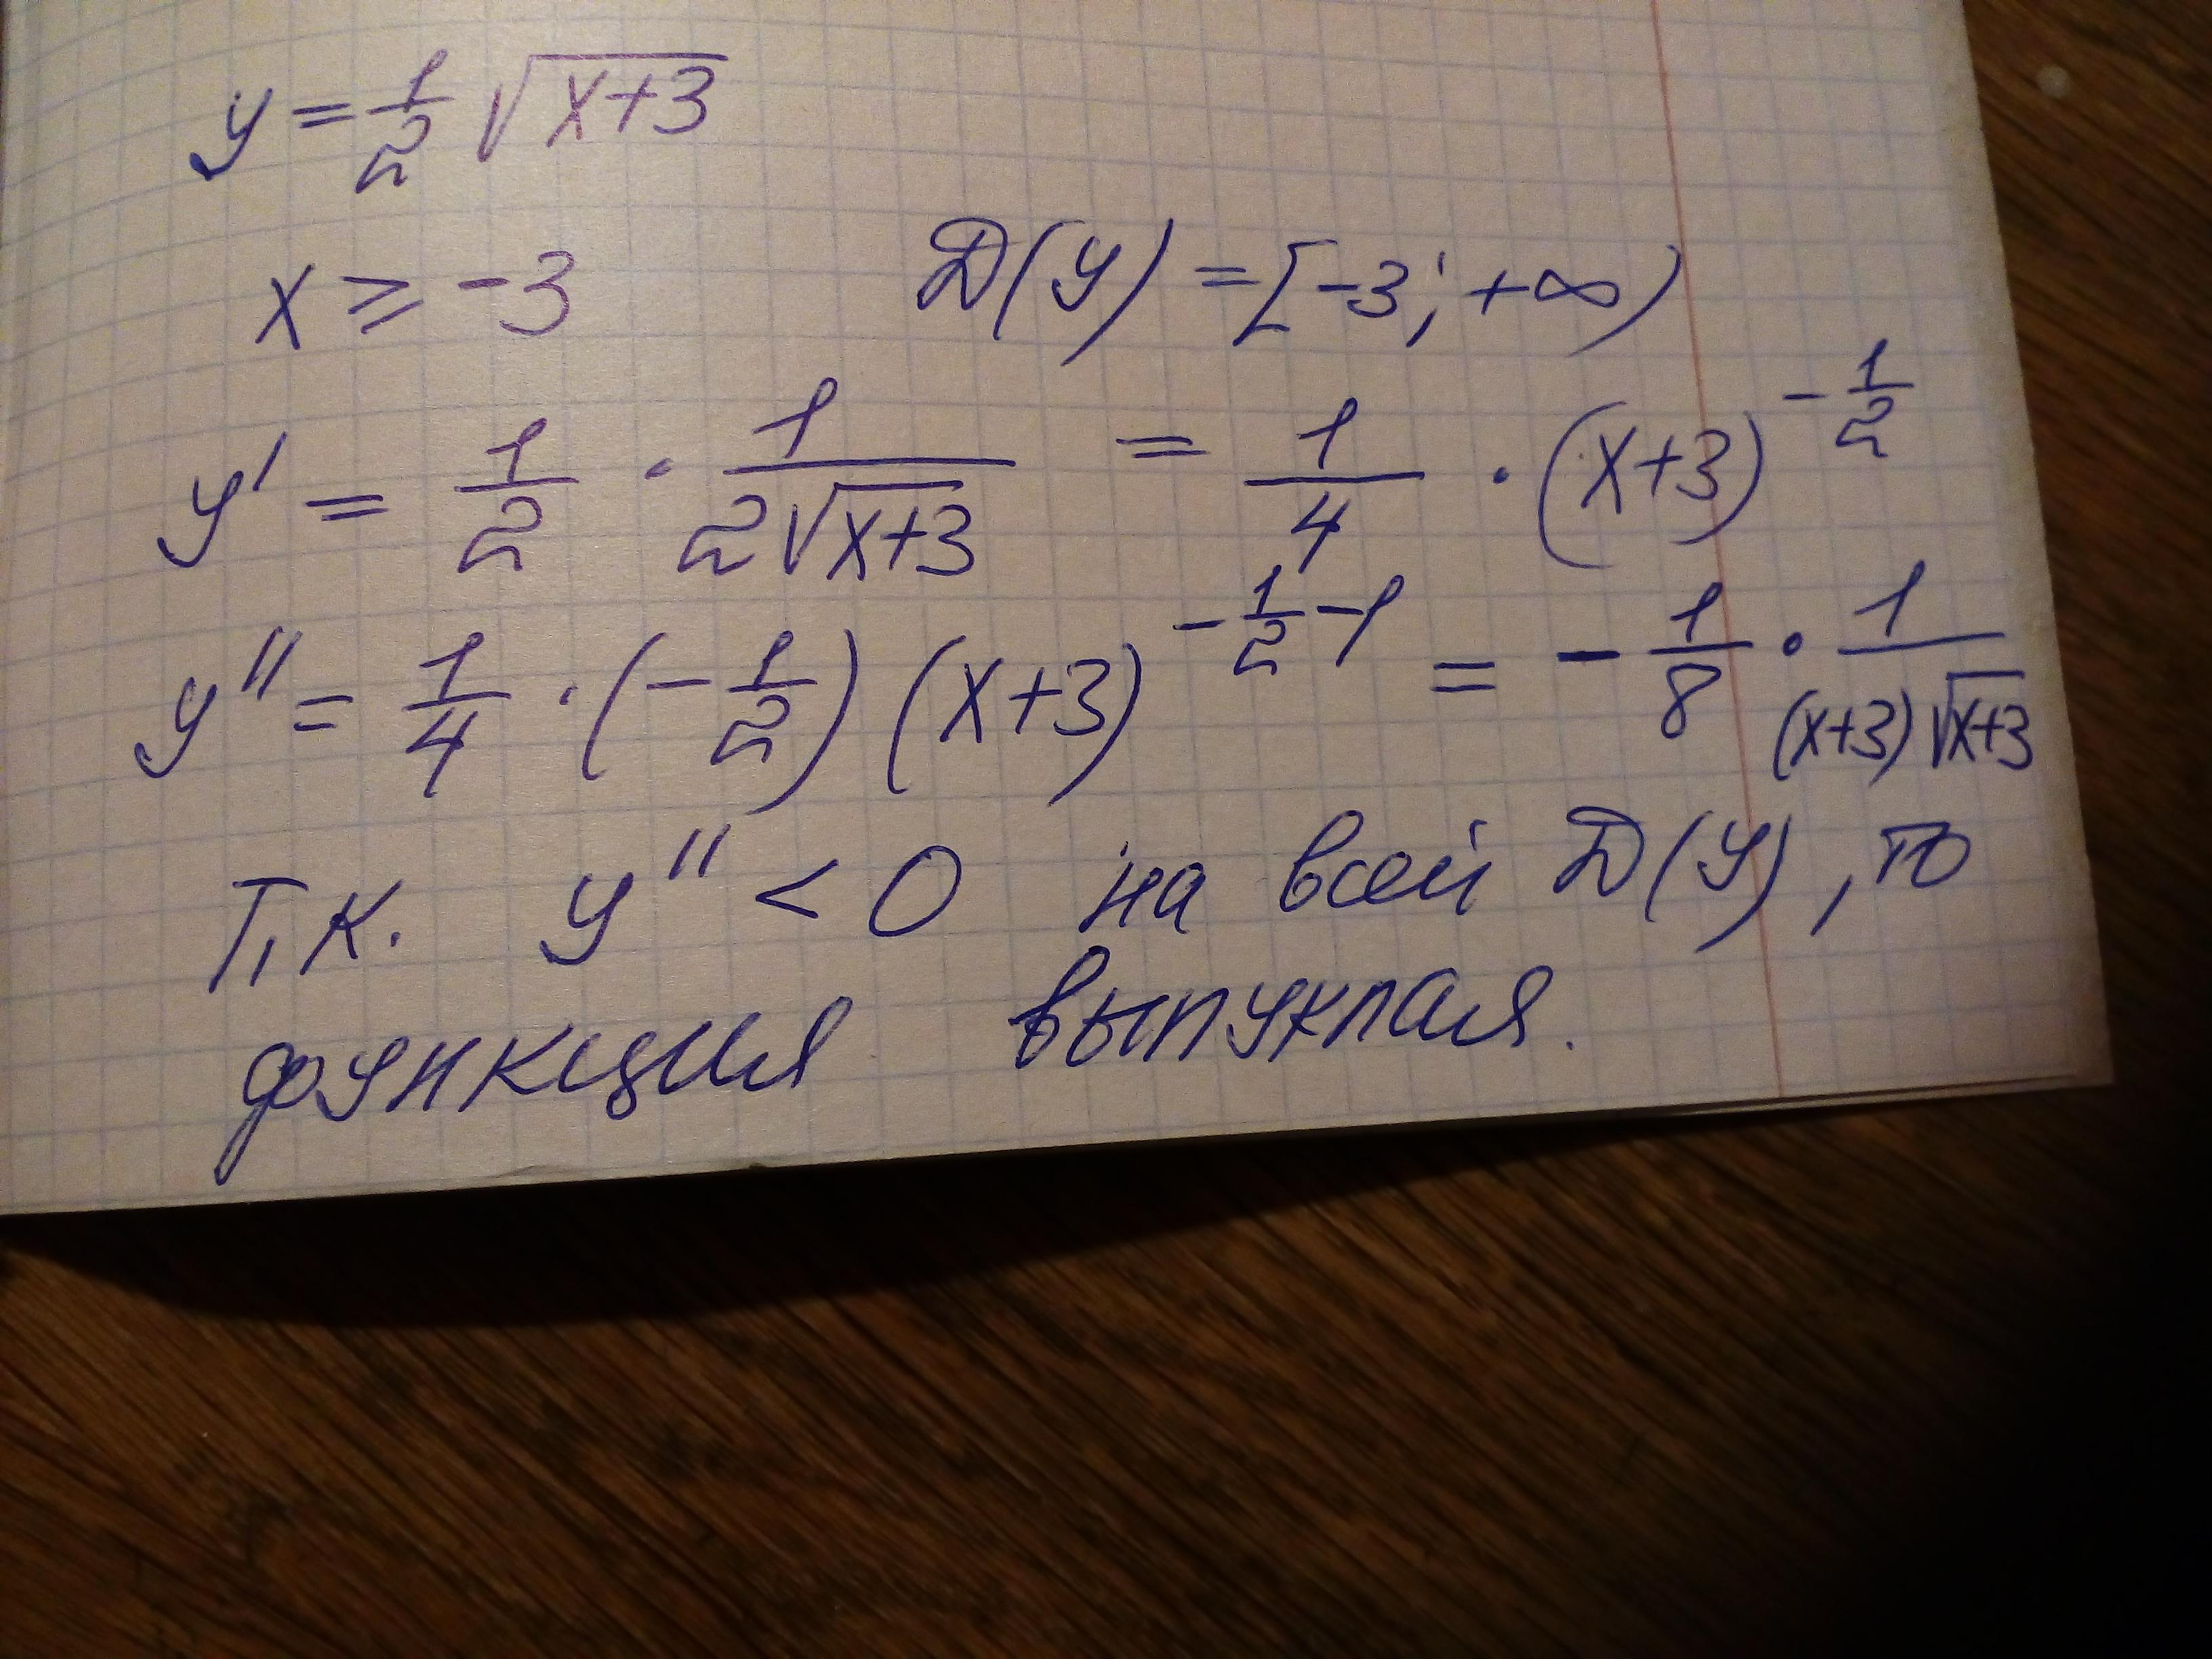 y = 1/2 √(x+3)
x ≥ -3 D(y) = [-3; +∞)
y' = 1/2 · 1/(2√(x+3)) = 1/4 · (x+3)^(-1/2)
y'' = 1/4 · (-1/2) (x+3)^(-1/2-1) = - 1/8 · 1/((x+3)√(x+3))
Т.к. y'' < 0 на всей D(y), то
функция выпуклая.